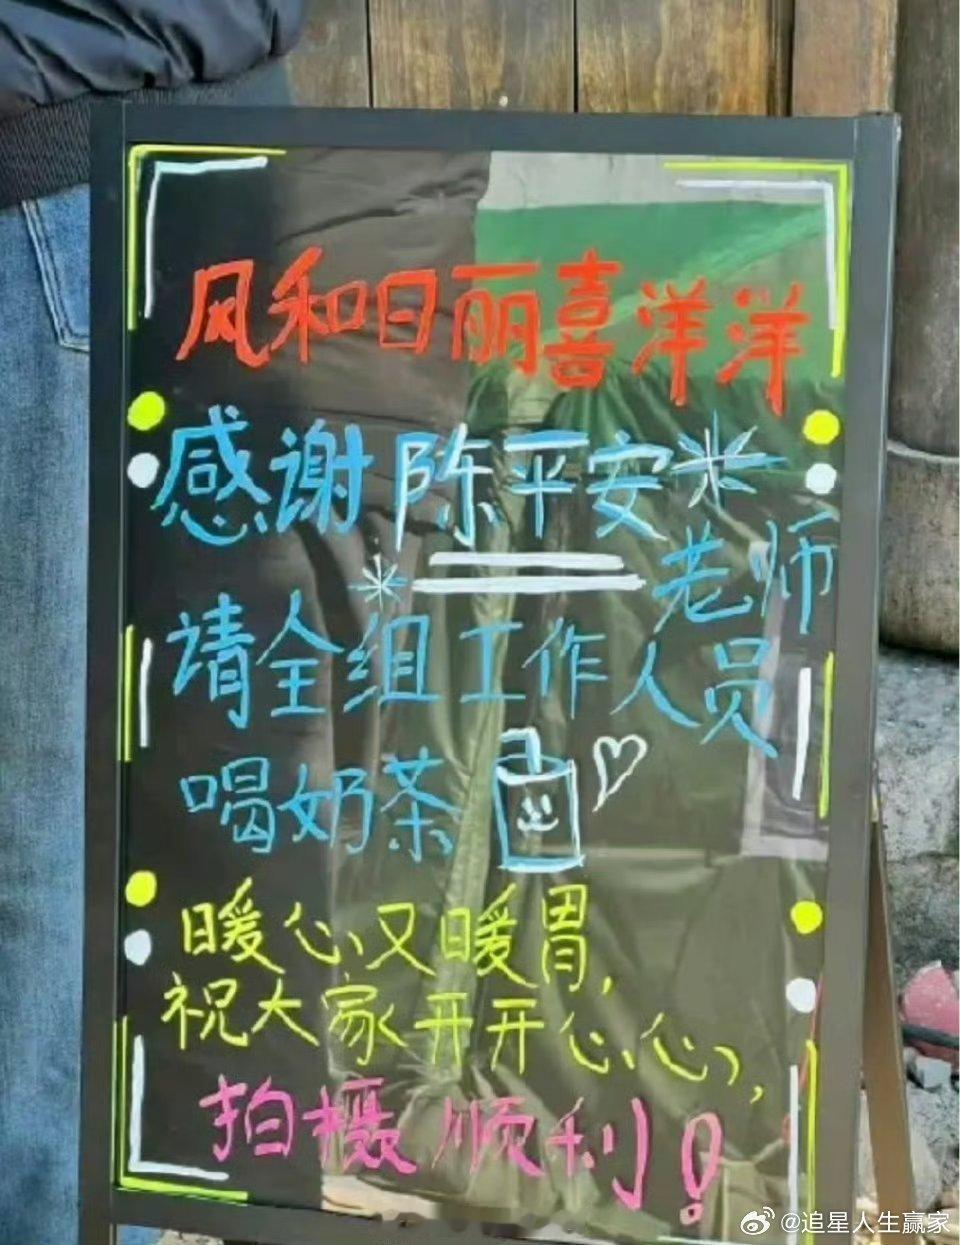 风和日丽喜洋洋
感谢陈平安
老师
请全组工作人员
喝奶茶
暖心又暖胃,
祝大家开开心心,
拍摄顺利!
@追星人生赢家